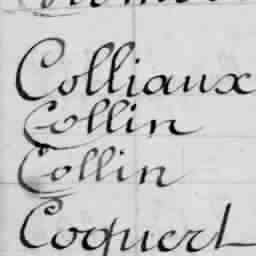 Colliaux
Collin
Collin
Coquert